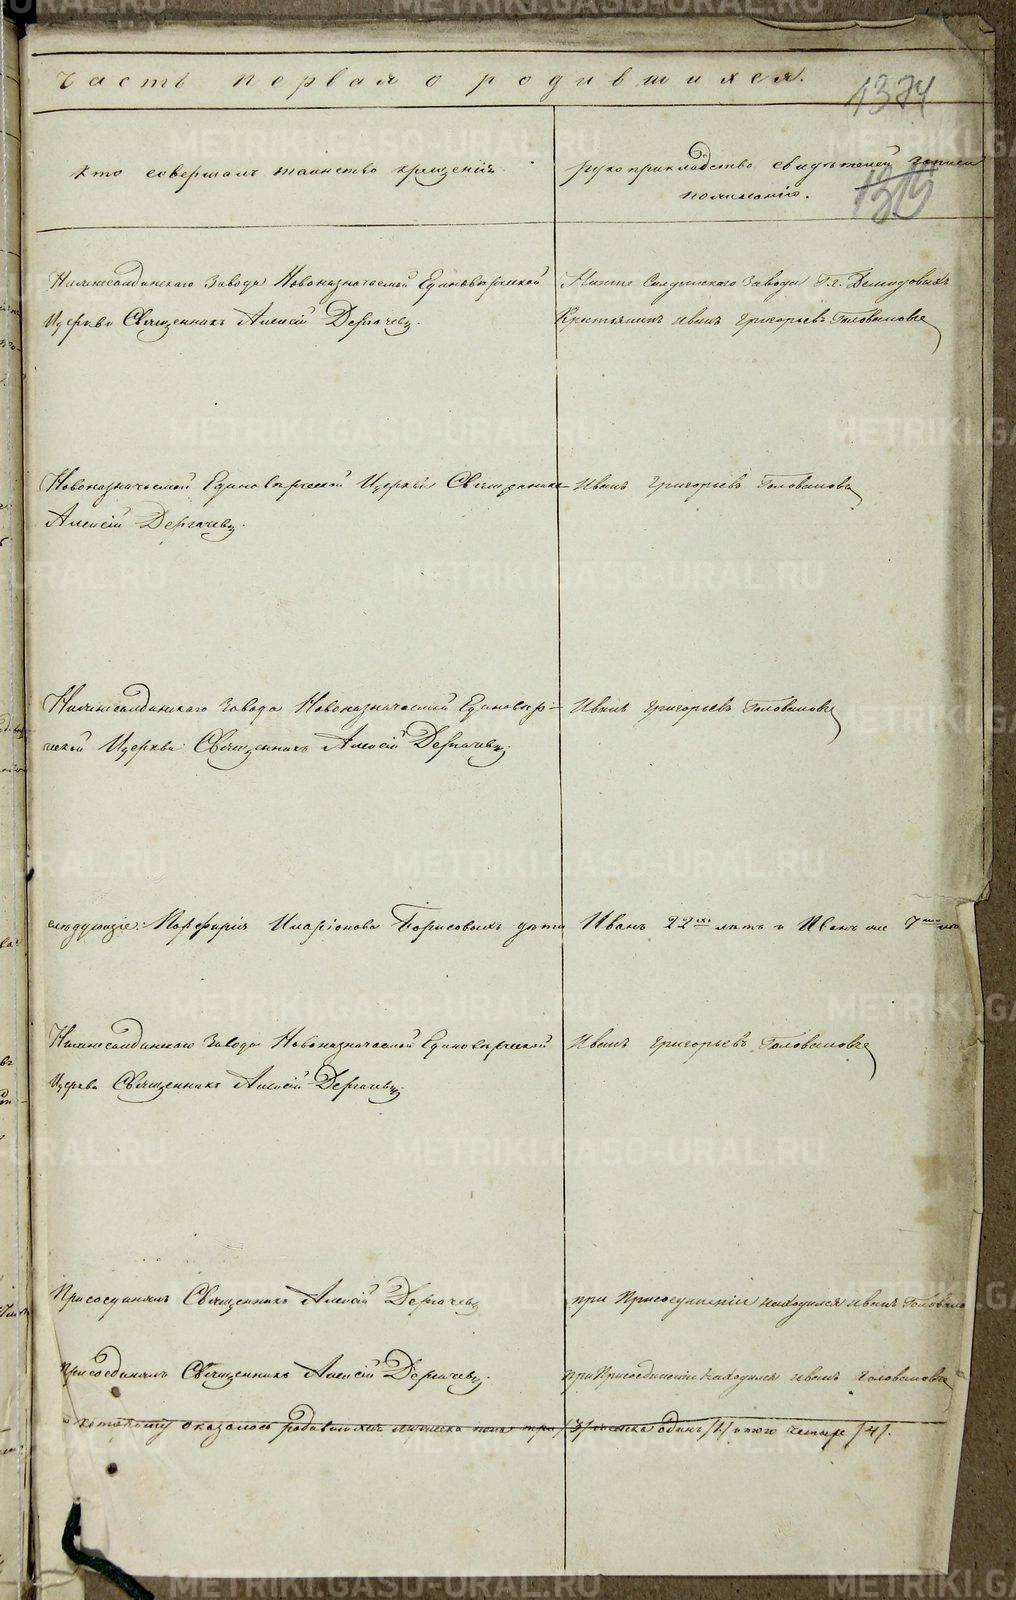 Часть первая о родившихся.
1374
Кто совершалъ таинство крещенія
рукоприкладство свидѣтелей записи
по желанію.
Нижнесалдинскаго Завода Новоназначаемой Единовѣрческой
Церкви Священникъ Алексій Дергачевъ.
Нижне Салдинскаго Завода Гг. Демидовыхъ
Крестьянинъ Иванъ Григорьевъ Головановъ
Новоназначаемой Единовѣрческой Церкви Священникъ
Алексій Дергачевъ.
Иванъ Григорьевъ Головановъ
Нижнесалдинскаго Завода Новоназначаемой Единовѣр=
ческой Церкви Священникъ Алексій Дергачевъ.
Иванъ Григорьевъ Головановъ
слѣдующіе: Порфирія Иларіонова Борисовыхъ дѣти Иванъ 22хъ лѣтъ и Иванъ же 7ми
Нижнесалдинскаго Завода Новоназначаемой Единовѣрческой
Церкви Священникъ Алексій Дергачевъ
Иванъ Григорьевъ Головановъ
Присоединялъ Священникъ Алексій Дергачевъ
при Присоединеніи находился Иванъ Головано
Присоединялъ Священникъ Алексій Дергачевъ.
при Присоединеніи находился Иванъ Головановъ
оказалось родившихся мужеска пола три /3/ женска одинъ /1/ итого четыре /4/.
METRIKI.GASO-URAL.RU